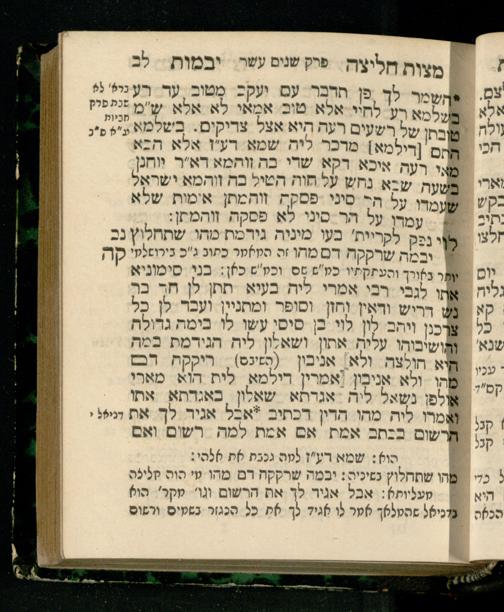 מצות חליצה פרק שנים עשר יבמות לב
*השמר לך פן תדבר עם יעקב מטוב עד רע
בשלמא רע לחיי אלא טוב אמאי לא אלא ש״מ
טובתן של רשעים רעה היא אצל צדיקים. בשלמא
התם [דילמא] מדכר ליה שמא דע״ז אלא הכא
מאי רעה איכא דקא שדי בה זוהמא דא״ר יוחנן
בשעה שבא נחש על חוה הטיל בה זוהמא ישראל
שעמדו על הר סיני פסקה זוהמתן אומות שלא
עמדו על הר סיני לא פסקה זוהמתן:
לוי נפק לקרייתא בעו מיניה גידמת מהו שתחלוץ נב
יבמה שרקקה דם מהו זה המאמר כתוב ג״כ בירושלמי קה
יותר באורך והעתקתיו כמ״ש שם וכמ״ש כאן: בני סימוניא
אתו לגבי רבי אמרי ליה בעיא תתן לן חד בר
נש דריש ודאין וחזן וסופר ומתניין ועבד לן כל
צרכנן ויהב לון לוי בן סיסי עשו לו בימה גדולה
והושיבוהו עליה אתון ושאלון ליה הגידמת במה
היא חולצה ולא] אגיבון (השיבם) ריקקה דם
מהו ולא אגיבון [אמרין דילמא לית הוא מארי
אולפן נשאל ליה אגדתא שאלון באגדתא אתו
ואמרו ליה מהו הדין דכתיב *אבל אגיד לך את
הרשום בכתב אמת אם אמת למה רשום ואם
הוא: שמא דע״ז למה גנבת את אלהי:
מהו שתחלוץ בשיניה: יבמה שרקקה דם מהו מי הוה חליצה
מעליותא: אבל אגיד לך את הרשום וגו׳ מקר׳ הוא
בדניאל שהמלאך אמר לו אגיד לך את כל הנגזר בשמים ורשום
גרא׳ לא
שבת פרק
חביות
ע״א פ״ב
דניאל י